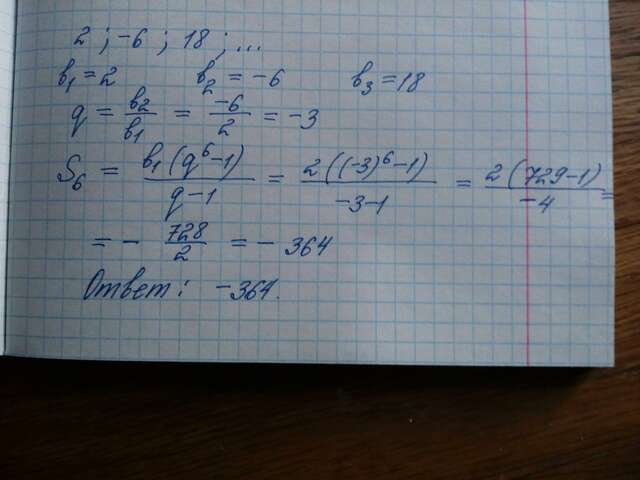 2 ; -6 ; 18 ; ...
b₁ = 2 b₂ = -6 b₃ = 18
q = b₂/b₁ = -6/2 = -3
S₆ = b₁(q⁶-1)/q-1 = 2((-3)⁶-1)/-3-1 = 2(729-1)/-4 =
= - 728/2 = - 364
Ответ: -364.